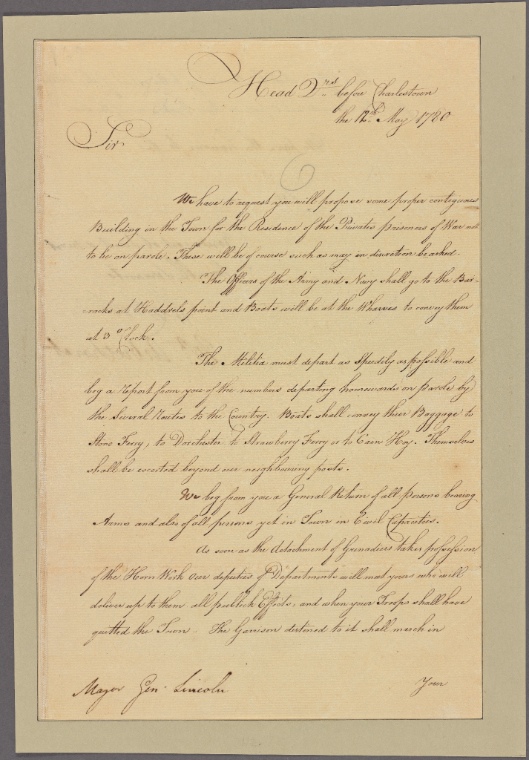 Head Qrs. before Charlestown
the 12th May 1780
Sir
We have to request you will propose some proper contiguous
Building in the Town for the Residence of the Privates prisoners of War not
to be on parole. These will be of course such as may in discretion be asked.
The Officers of the Army and Navy shall go to the Bar-
racks at Haddrels point and Boats will be at the Wharves to convey them
at 3 o'Clock.
The Militia must depart as Speedily as possible and
by a report from you of the numbers departing homewards on Parole by
the Several Routes to the Country. Boats shall convey their Baggage to
Stono Ferry, to Dorchester to Strawberry Ferry or to Cain Hoy. Themselves
shall be escorted beyond our neighbouring posts.
We beg from you a General Return of all persons bearing
Arms and also of all persons yet in Town in Civil Capacities.
As soon as the detachment of Grenadiers takes possession
of the Horn Work our deputies of Departments will meet yours who will
deliver up to them all publick Effects, and when your Troops shall have
quitted the Town. The Garrison destined to it shall march in
Major Gen. Lincoln
Your